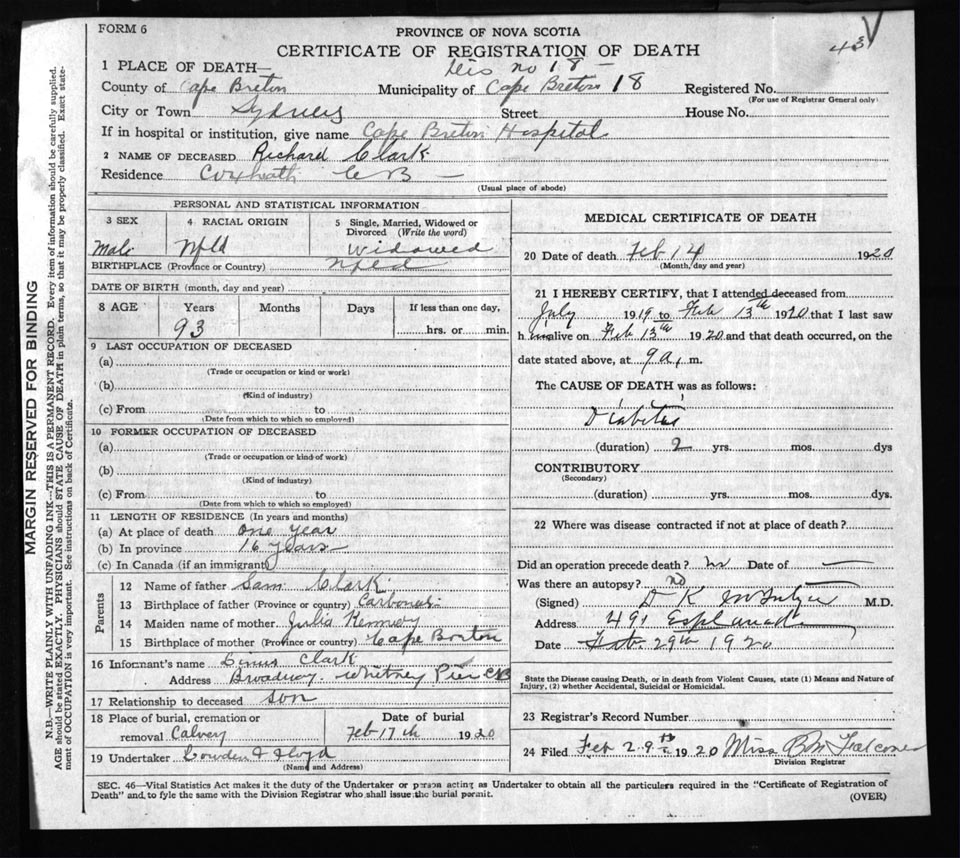 FORM 6
PROVINCE OF NOVA SCOTIA
43 V
CERTIFICATE OF REGISTRATION OF DEATH
1 PLACE OF DEATH— Dis no 18 —
County of Cape Breton Municipality of Cape Breton 18 Registered No.
(For use of Registrar General only)
City or Town Sydney Street House No.
If in hospital or institution, give name Cape Breton Hospital
2 NAME OF DECEASED Richard Clark
Residence Coxheath C B —
(Usual place of abode)
PERSONAL AND STATISTICAL INFORMATION
3 SEX 4 RACIAL ORIGIN 5 Single, Married, Widowed or Divorced (Write the word)
Male Nfld Widowed
BIRTHPLACE (Province or Country) Nfld
DATE OF BIRTH (month, day and year)
8 AGE Years Months Days If less than one day,
93 hrs. or min.
9 LAST OCCUPATION OF DECEASED
(a)
(Trade or occupation or kind or work)
(b)
(Kind of industry)
(c) From to
(Date from which to which so employed)
10 FORMER OCCUPATION OF DECEASED
(a)
(Trade or occupation or kind of work)
(b)
(Kind of industry)
(c) From to
(Date from which to which so employed)
11 LENGTH OF RESIDENCE (In years and months)
(a) At place of death One Year
(b) In province 16 years
(c) In Canada (if an immigrant)
Parents
12 Name of father Sam Clark
13 Birthplace of father (Province or country)
14 Maiden name of mother Julia Kennedy
15 Birthplace of mother (Province or country) Cape Breton
16 Informant's name Clark
Address Broadway Whitney Pier CB
17 Relationship to deceased son
18 Place of burial, cremation or Date of burial
removal Calvery Feb 17 th 1920
19 Undertaker
(Name and Address)
MEDICAL CERTIFICATE OF DEATH
20 Date of death Feb 14 1920
(Month, day and year)
21 I HEREBY CERTIFY, that I attended deceased from
July 1919 to Feb 13th 1920 that I last saw
him alive on Feb 13th 1920 and that death occurred, on the
date stated above, at 9 a. m.
The CAUSE OF DEATH was as follows:
Diabetes
(duration) 2 yrs. mos. dys
CONTRIBUTORY
(Secondary)
(duration) yrs. mos. dys.
22 Where was disease contracted if not at place of death?
Did an operation precede death? no Date of —
Was there an autopsy? no
(Signed) D K M.D.
Address 491 Esplanade
Date Feb. 29th 1920
State the Disease causing Death, or in death from Violent Causes, state (1) Means and Nature of
Injury, (2) whether Accidental, Suicidal or Homicidal.
23 Registrar's Record Number
24 Filed Feb 29th 1920 Miss Falconer
Division Registrar
SEC. 46—Vital Statistics Act makes it the duty of the Undertaker or person acting as Undertaker to obtain all the particulars required in the "Certificate of Registration of
Death" and to fyle the same with the Division Registrar who shall issue the burial permit.
(OVER)
MARGIN RESERVED FOR BINDING
N.B.—WRITE PLAINLY WITH UNFADING INK—THIS IS A PERMANENT RECORD. Every item of information should be carefully supplied.
AGE should be stated EXACTLY. PHYSICIANS should STATE CAUSE OF DEATH in plain terms, so that it may be properly classified. Exact state-
ment of OCCUPATION is very important. See instructions on back of Certificate.